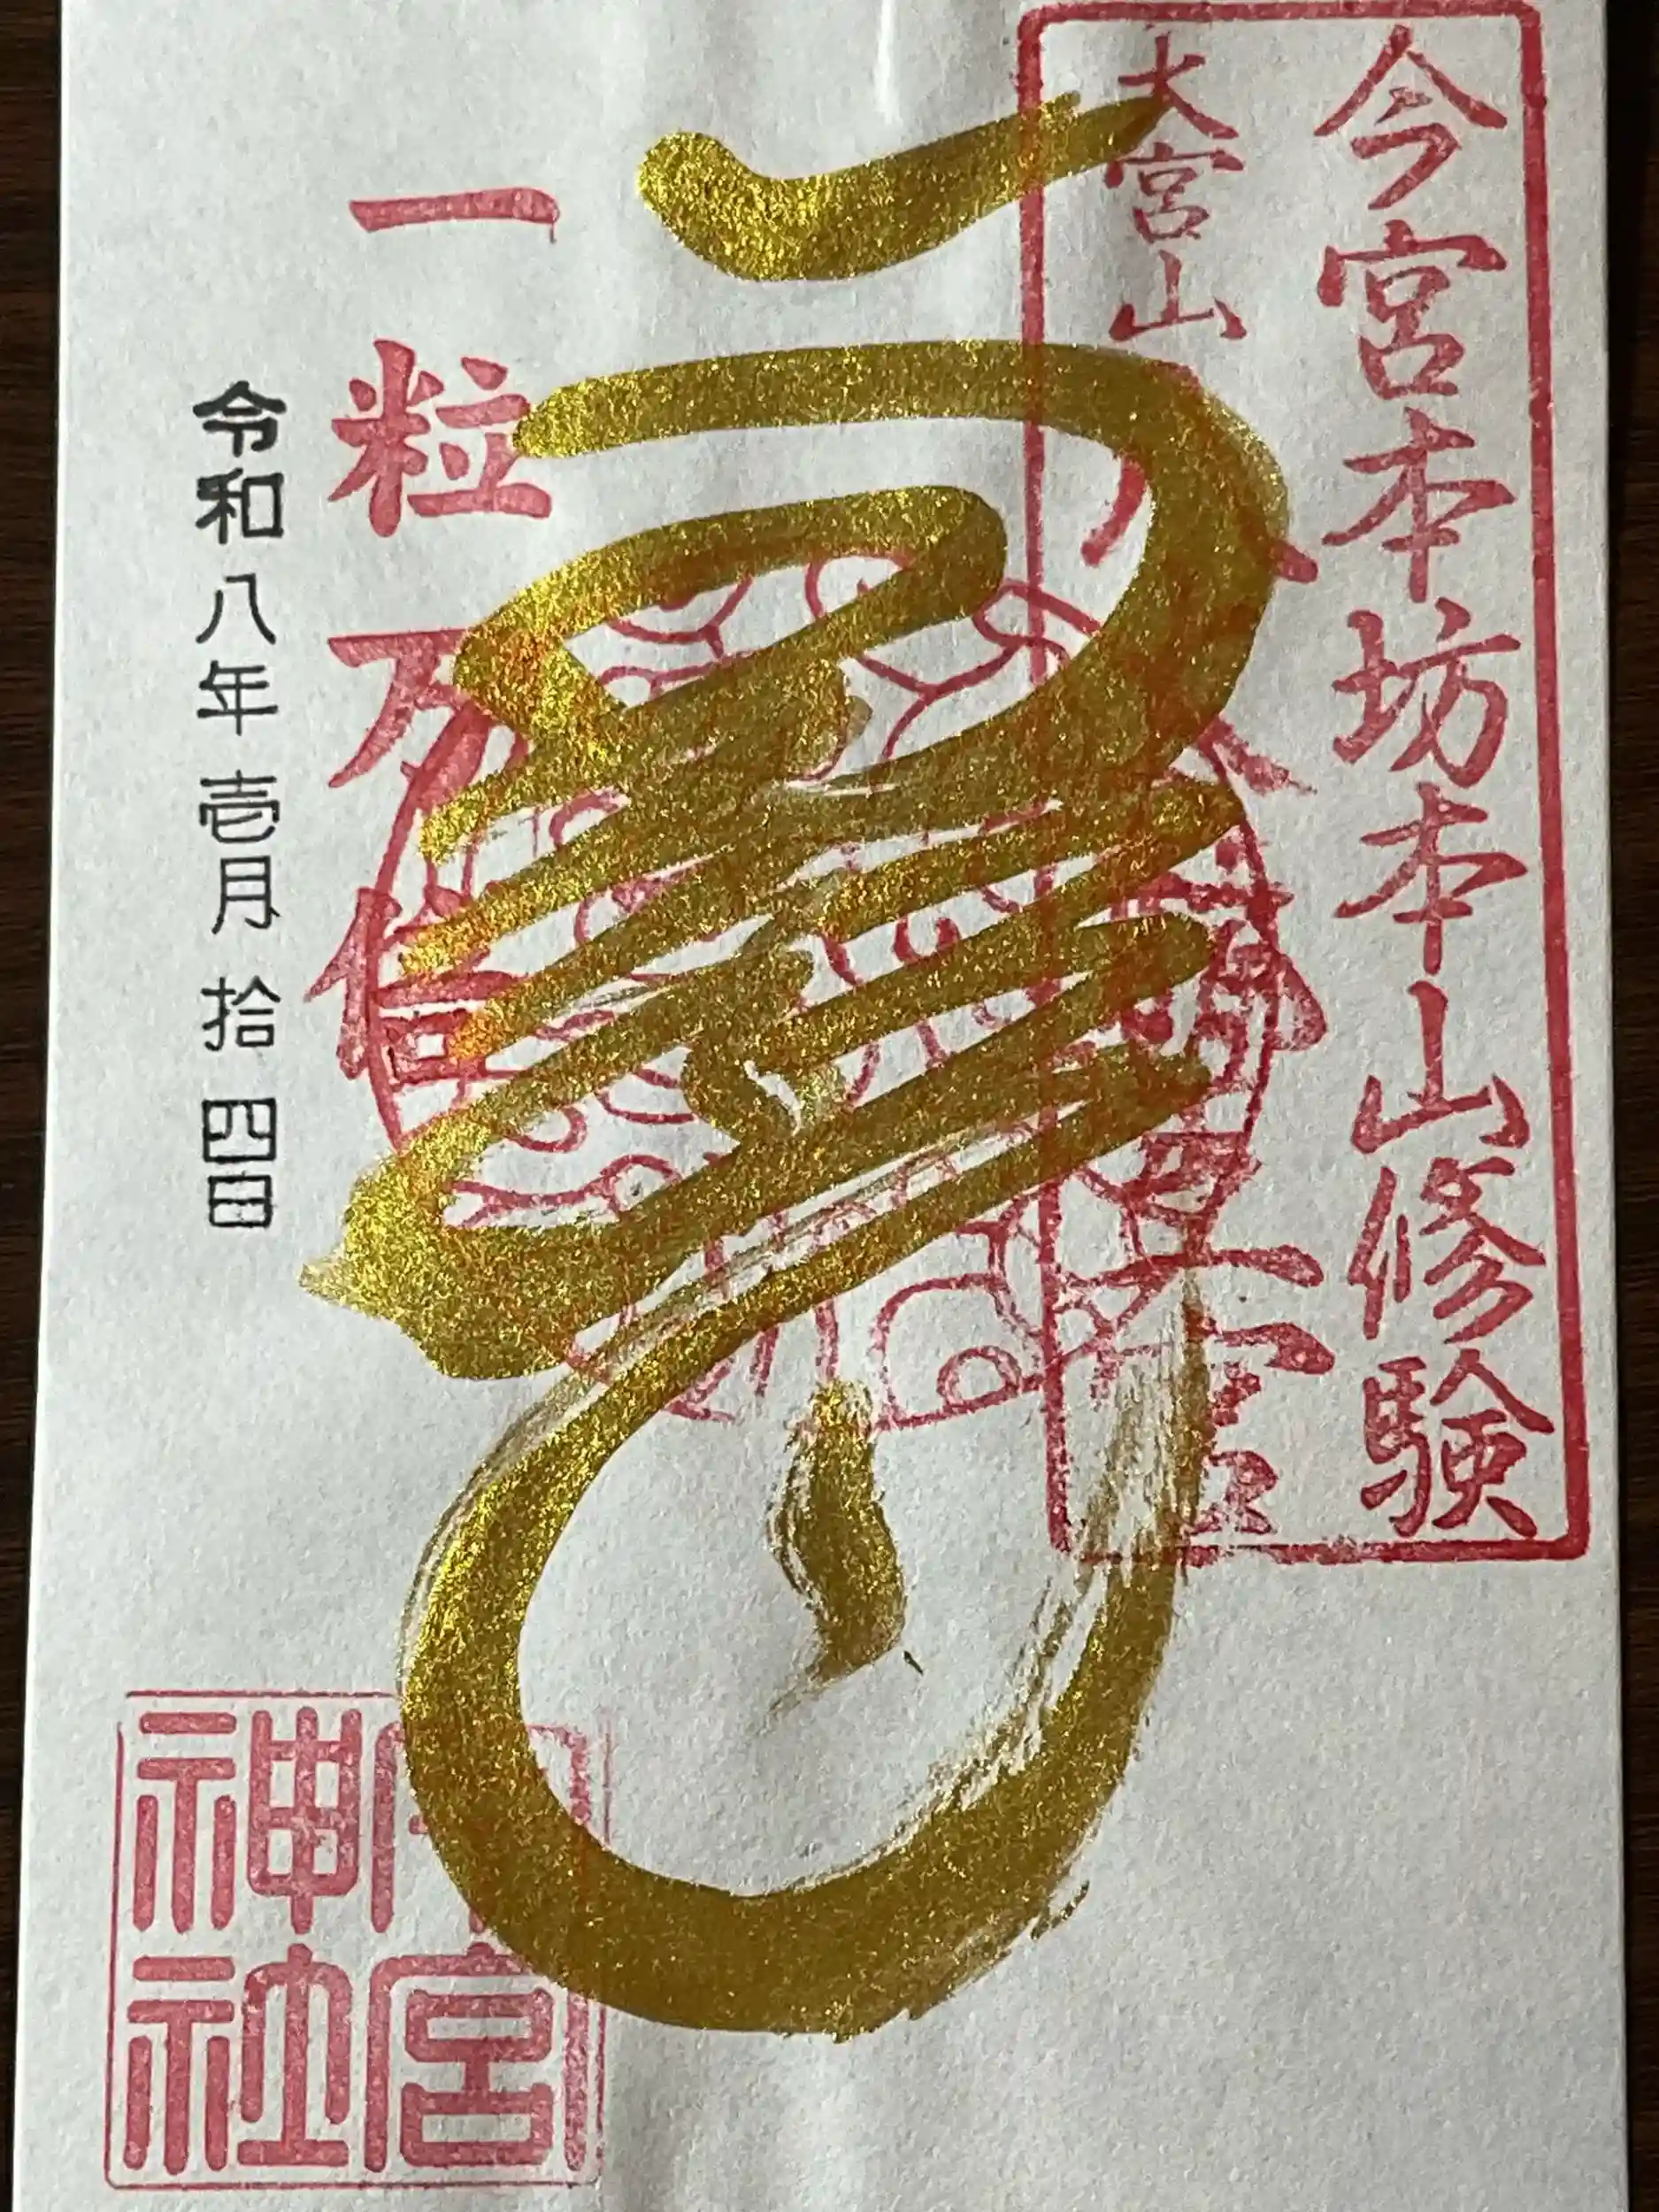 今宮本坊本山修験
大宮山
八大龍王宮
一粒万倍
令和八年壱月拾四日
今宮神社